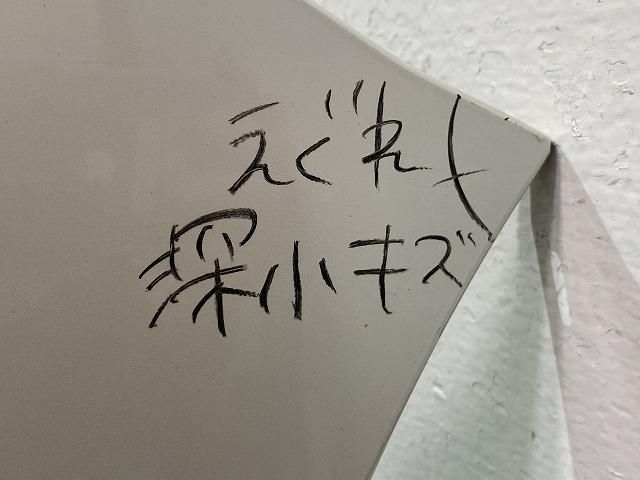 えぐれ
深小キズ